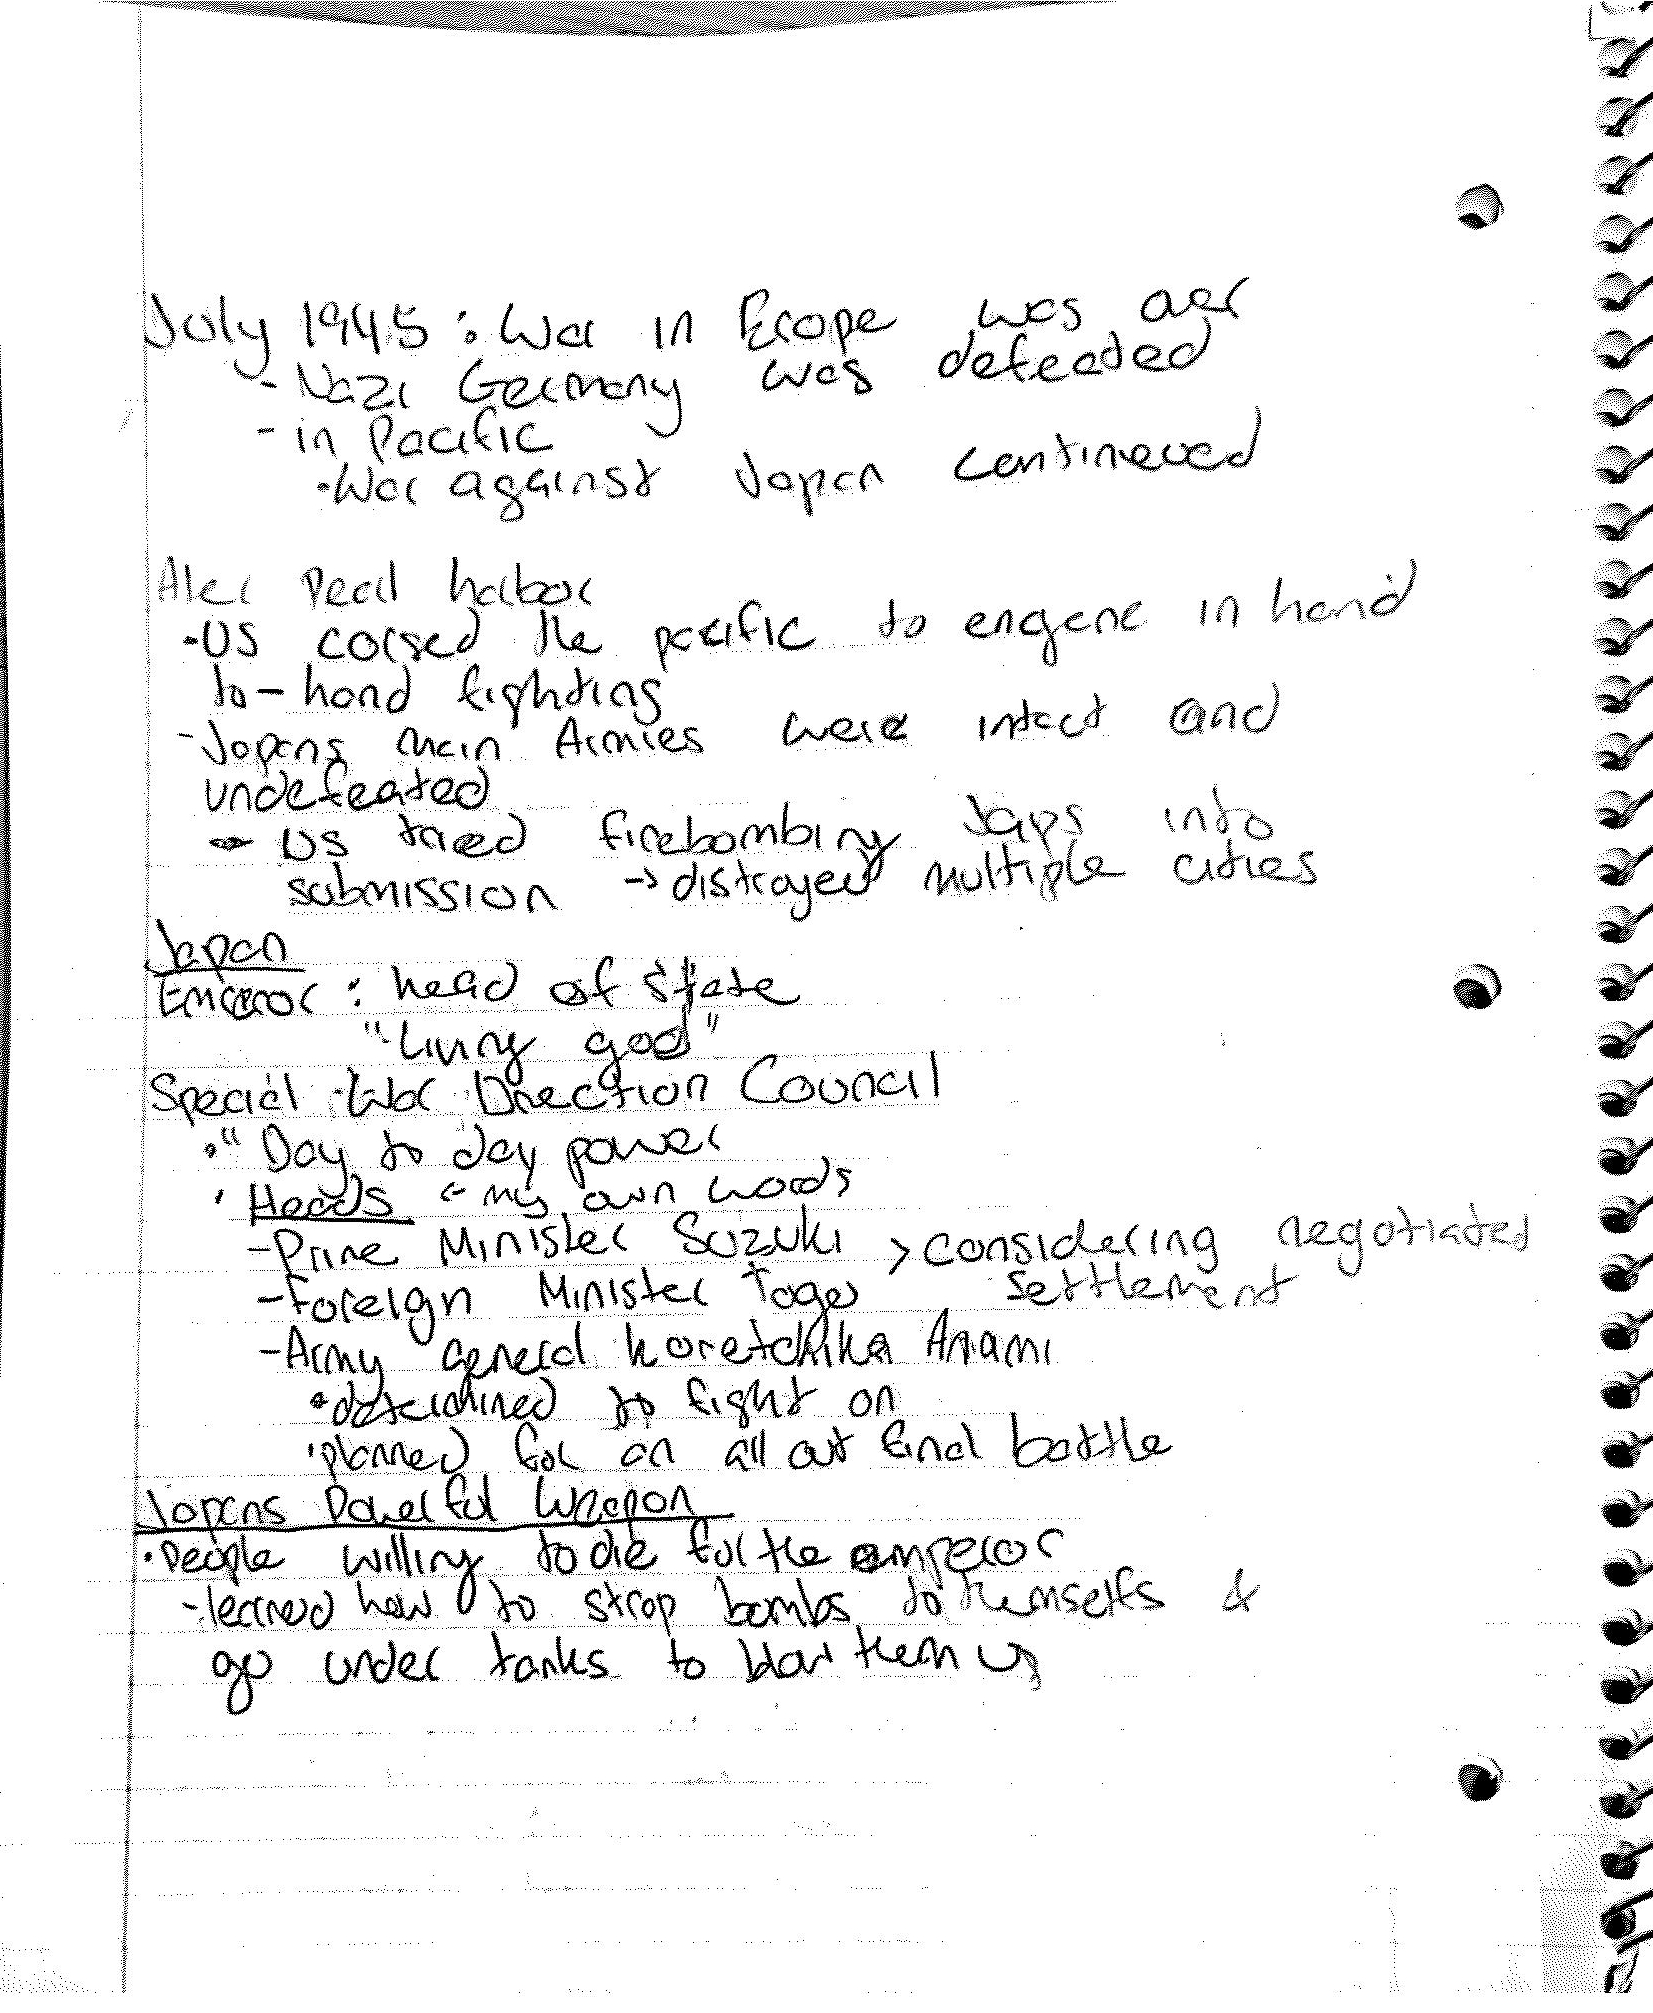 July 1945 : War in Erope was over
- Nazi Germany was defeated
- in Pacific
• War against Japan contineued
After Pearl harbor
• US corsed the pacific to engane in hand
to - hand fighting
- Japans main Armies were intact and
undefeated
- US tried firebombing Japs into
submission → distroyed multiple cities
Japan
Emperor : head of State
"Living god"
Special War Direction Council
• " Day to day power
• Heads ← my own words
- Prime Minister Suzuki > considering negotiated
- Foreign Minister Togo settlement
- Army general Koretchika Anami
• determined to fight on
• planned for an all out final battle
Japans Powerful Weapon
• People willing to die for the emperor
- learned how to strap bombs to themselfs &
go under tanks to blow them up